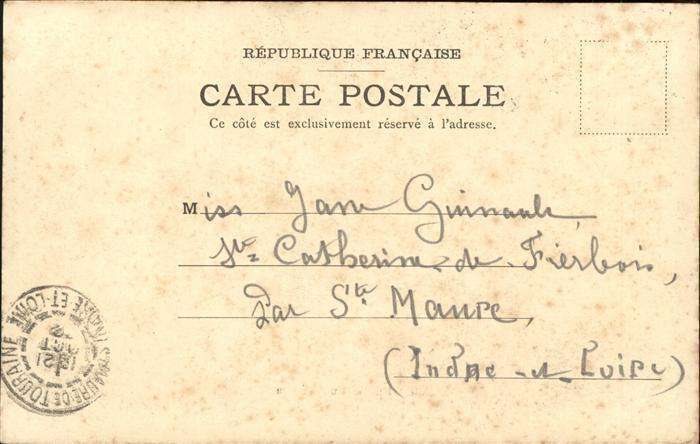 RÉPUBLIQUE FRANÇAISE
CARTE POSTALE
Ce côté est exclusivement réservé à l'adresse.
Miss Jane Guinault,
Ste Catherine de Fierbois,
Par Ste Maure,
(Indre-et-Loire)
STE MAURE DE TOURAINE
INDRE-ET-LOIRE